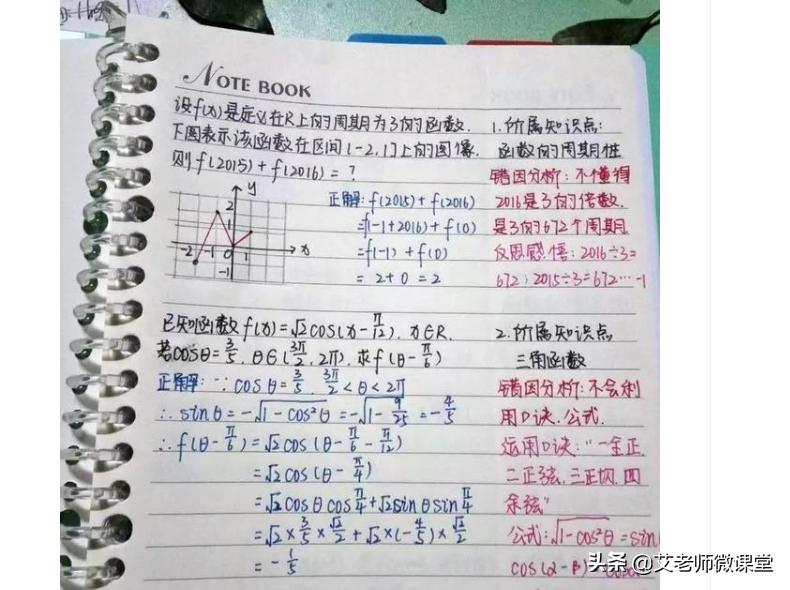 NOTE BOOK
设f(x)是定义在R上的周期为3的函数.
下图表示该函数在区间[-2,1]上的图像.
则f(2015)+f(2016)=?
y
2
1
-2 -1 0 1 x
-1
正解:f(2015)+f(2016)
=f(-1+2016)+f(0)
=f(-1)+f(0)
=2+0=2
1.所属知识点:
函数的周期性
错因分析:不懂得
2016是3的倍数.
是3的672个周期
反思感悟:2016÷3=
672;2015÷3=672…-1
已知函数f(x)=√2cos(x-π/12).x∈R.
若cosθ=3/5.θ∈(3π/2,2π).求f(θ-π/6)
正解:∵cosθ=3/5.3π/2<θ<2π
∴sinθ=-√1-cos²θ=-√1-9/25=-4/5
∴f(θ-π/6)=√2cos(θ-π/6-π/12)
=√2cos(θ-π/4)
=√2cosθcosπ/4+√2sinθsinπ/4
=√2×3/5×√2/2+√2×(-4/5)×√2/2
=-1/5
2.所属知识点
三角函数
错因分析:不会利
用口诀.公式.
运用口诀:"一全正.
二正弦.三正切.四
余弦"
公式:√1-cos²θ=sin
cos(α-β)
头条 @艾老师微课堂